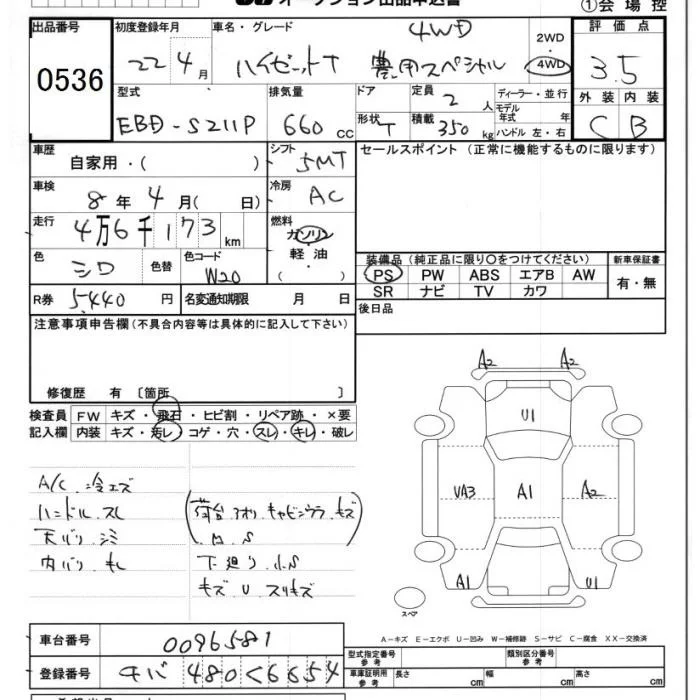 オークション出品申込書
①会場控
出品番号
0536
初度登録年月
22年4月
車名・グレード
4WD
ハイゼットT 農用スペシャル
2WD
・
4WD
評価点
3.5
型式
EBD-S211P
排気量
660cc
ドア
形状 T
定員 2人
積載 350kg
ディーラー・並行
モデル年式 年式
ハンドル 左・右
外装 内装
C B
車歴
自家用・( )
シフト
5MT
セールスポイント(正常に機能するものに限ります)
車検
8年4月( 日)
冷房
AC
走行
4万6千173km
燃料
ガソリン
軽・油
・( )
色
シロ
色替
色コード
W20
装備品(純正品に限り○をつけてください)
PS PW ABS エアB AW
SR ナビ TV カワ
新車保証書
有・無
R券 5,440円
名変通知期限 月 日
後日品
注意事項申告欄(不具合内容等は具体的に記入して下さい)
修復歴 有〔箇所 〕
検査員
記入欄
FW キズ・飛石・ヒビ割・リペア跡・×要
内装 キズ・汚レ・コゲ・穴・スレ・キレ・破レ
A/C 冷エズ
ハンドル スレ
天バリ シミ
内バリ キレ
(荷台 アオリ キャビンウラ キズ
凹 S)
下廻り 小S
キズ U スリキズ
A2 A2
U1
VA3 A1 A2
A1 U1
スペア
A-キズ E-エクボ U-凹み W-補修跡 S-サビ C-腐食 XX-交換済
車台番号 0096581
登録番号 チバ 480く6654
型式指定番号 参考
類別区分番号 参考
車庫証明用 参考
長さ cm
幅 cm
高さ cm